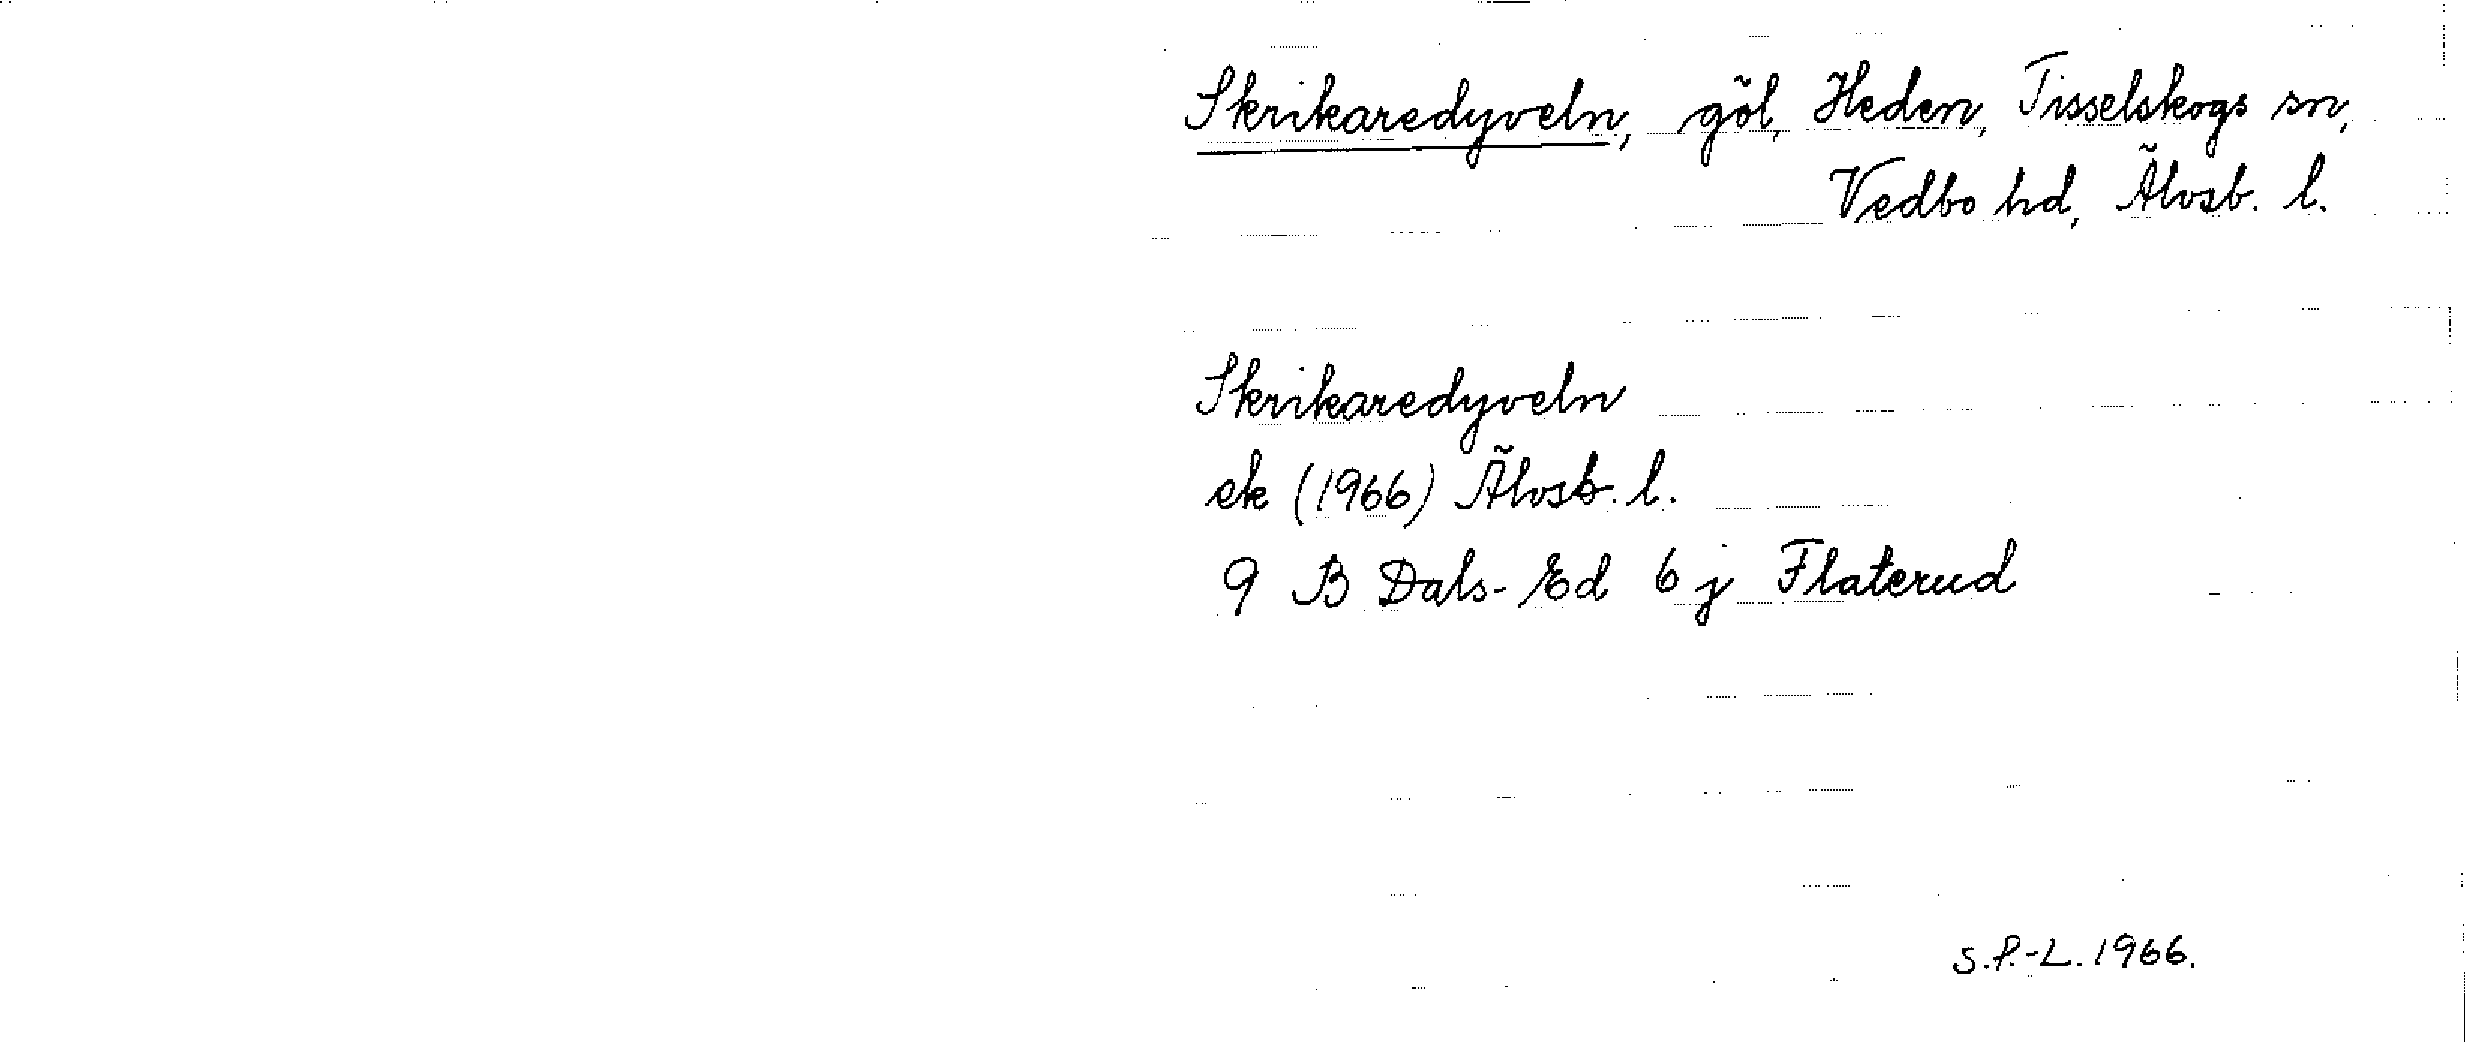 Skrikaredyveln, göl, Heden, Tisselskogs sn,
Vedbo hd, Älvsb. l.
Skrikaredyveln
ek (1966) Älvsb. l.
9 B Dals-Ed 6 j Flaterud
S.P.-L. 1966.